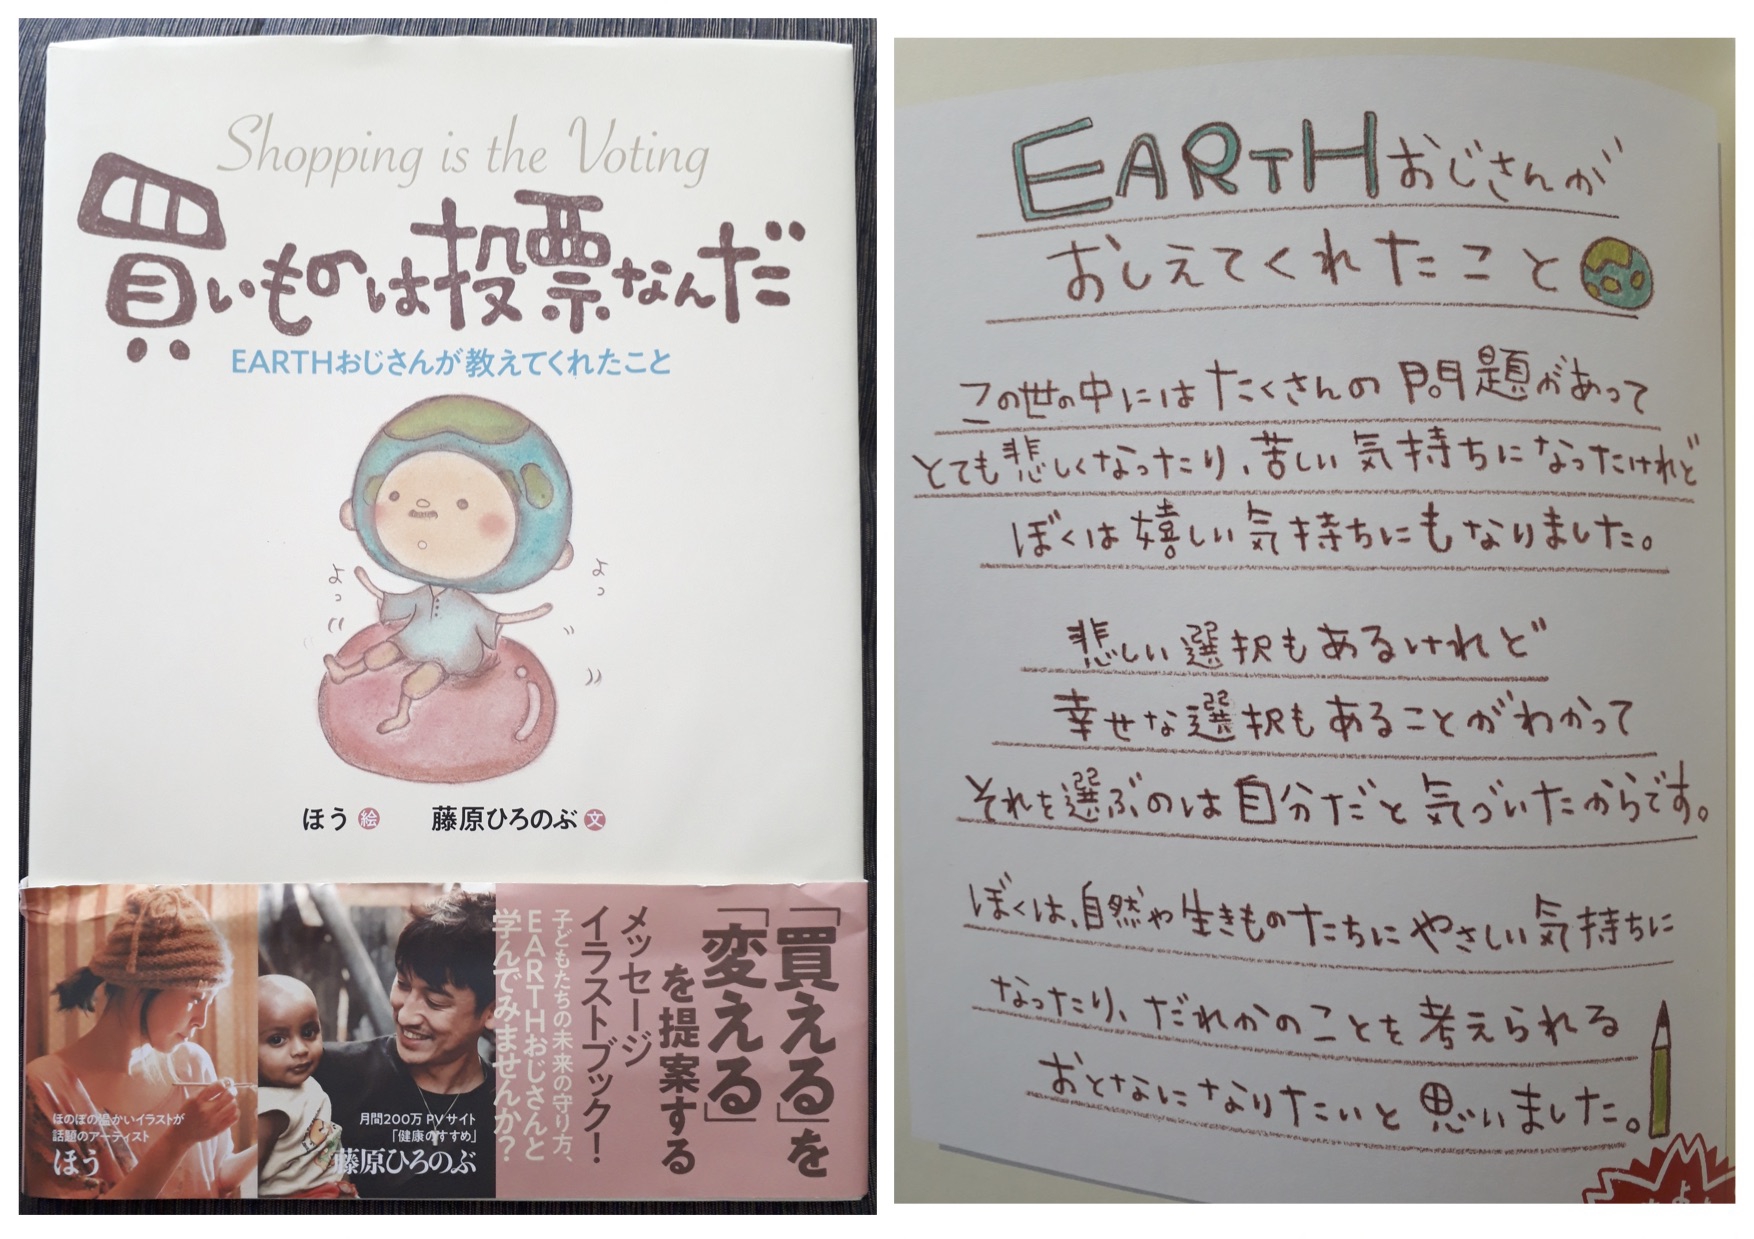 Shopping is the Voting
買いものは投票なんだ
EARTHおじさんが教えてくれたこと
よっ
よっ
ほう 絵 藤原ひろのぶ 文
「買える」を
「変える」
を提案する
メッセージ
イラストブック!
子どもたちの未来の守り方、
EARTHおじさんと
学んでみませんか?
ほのぼの温かいイラストが
話題のアーティスト
ほう
月間200万PVサイト
「健康のすすめ」
藤原ひろのぶ
EARTHおじさんが
おしえてくれたこと
この世の中にはたくさんの問題があって
とても悲しくなったり、苦しい気持ちになったけれど
ぼくは嬉しい気持ちにもなりました。
悲しい選択もあるけれど
幸せな選択もあることがわかって
それを選ぶのは自分だと気づいたからです。
ぼくは、自然や生きものたちにやさしい気持ちに
なったり、だれかのことを考えられる
おとなになりたいと思いました。